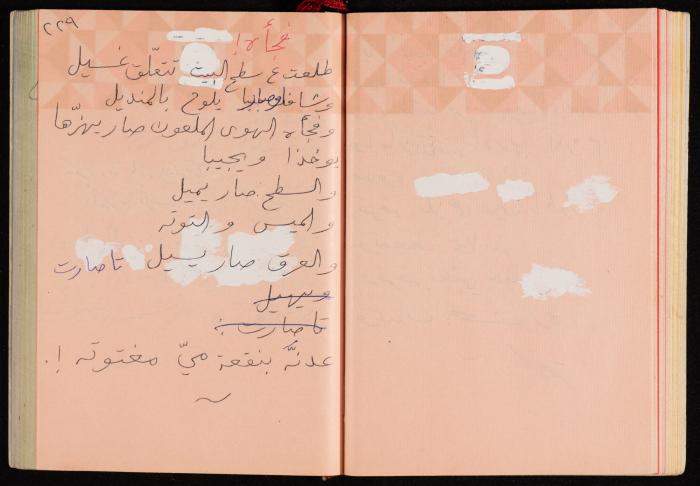 ٢٢٩
فجأه!
طلعت ع سطح البيت تتعلّق غسيل
وشافلو يلوح بالمنديل
وفجأه الهوى الملعون صار يهزّها
يوخذا ويجيبا
والسطح صار يميل
والميس والتوته
والعرق صار يسيل تا صارت
ويهيل
تا صارت:
عدنّه بنقعة ميّ مغتوته !.